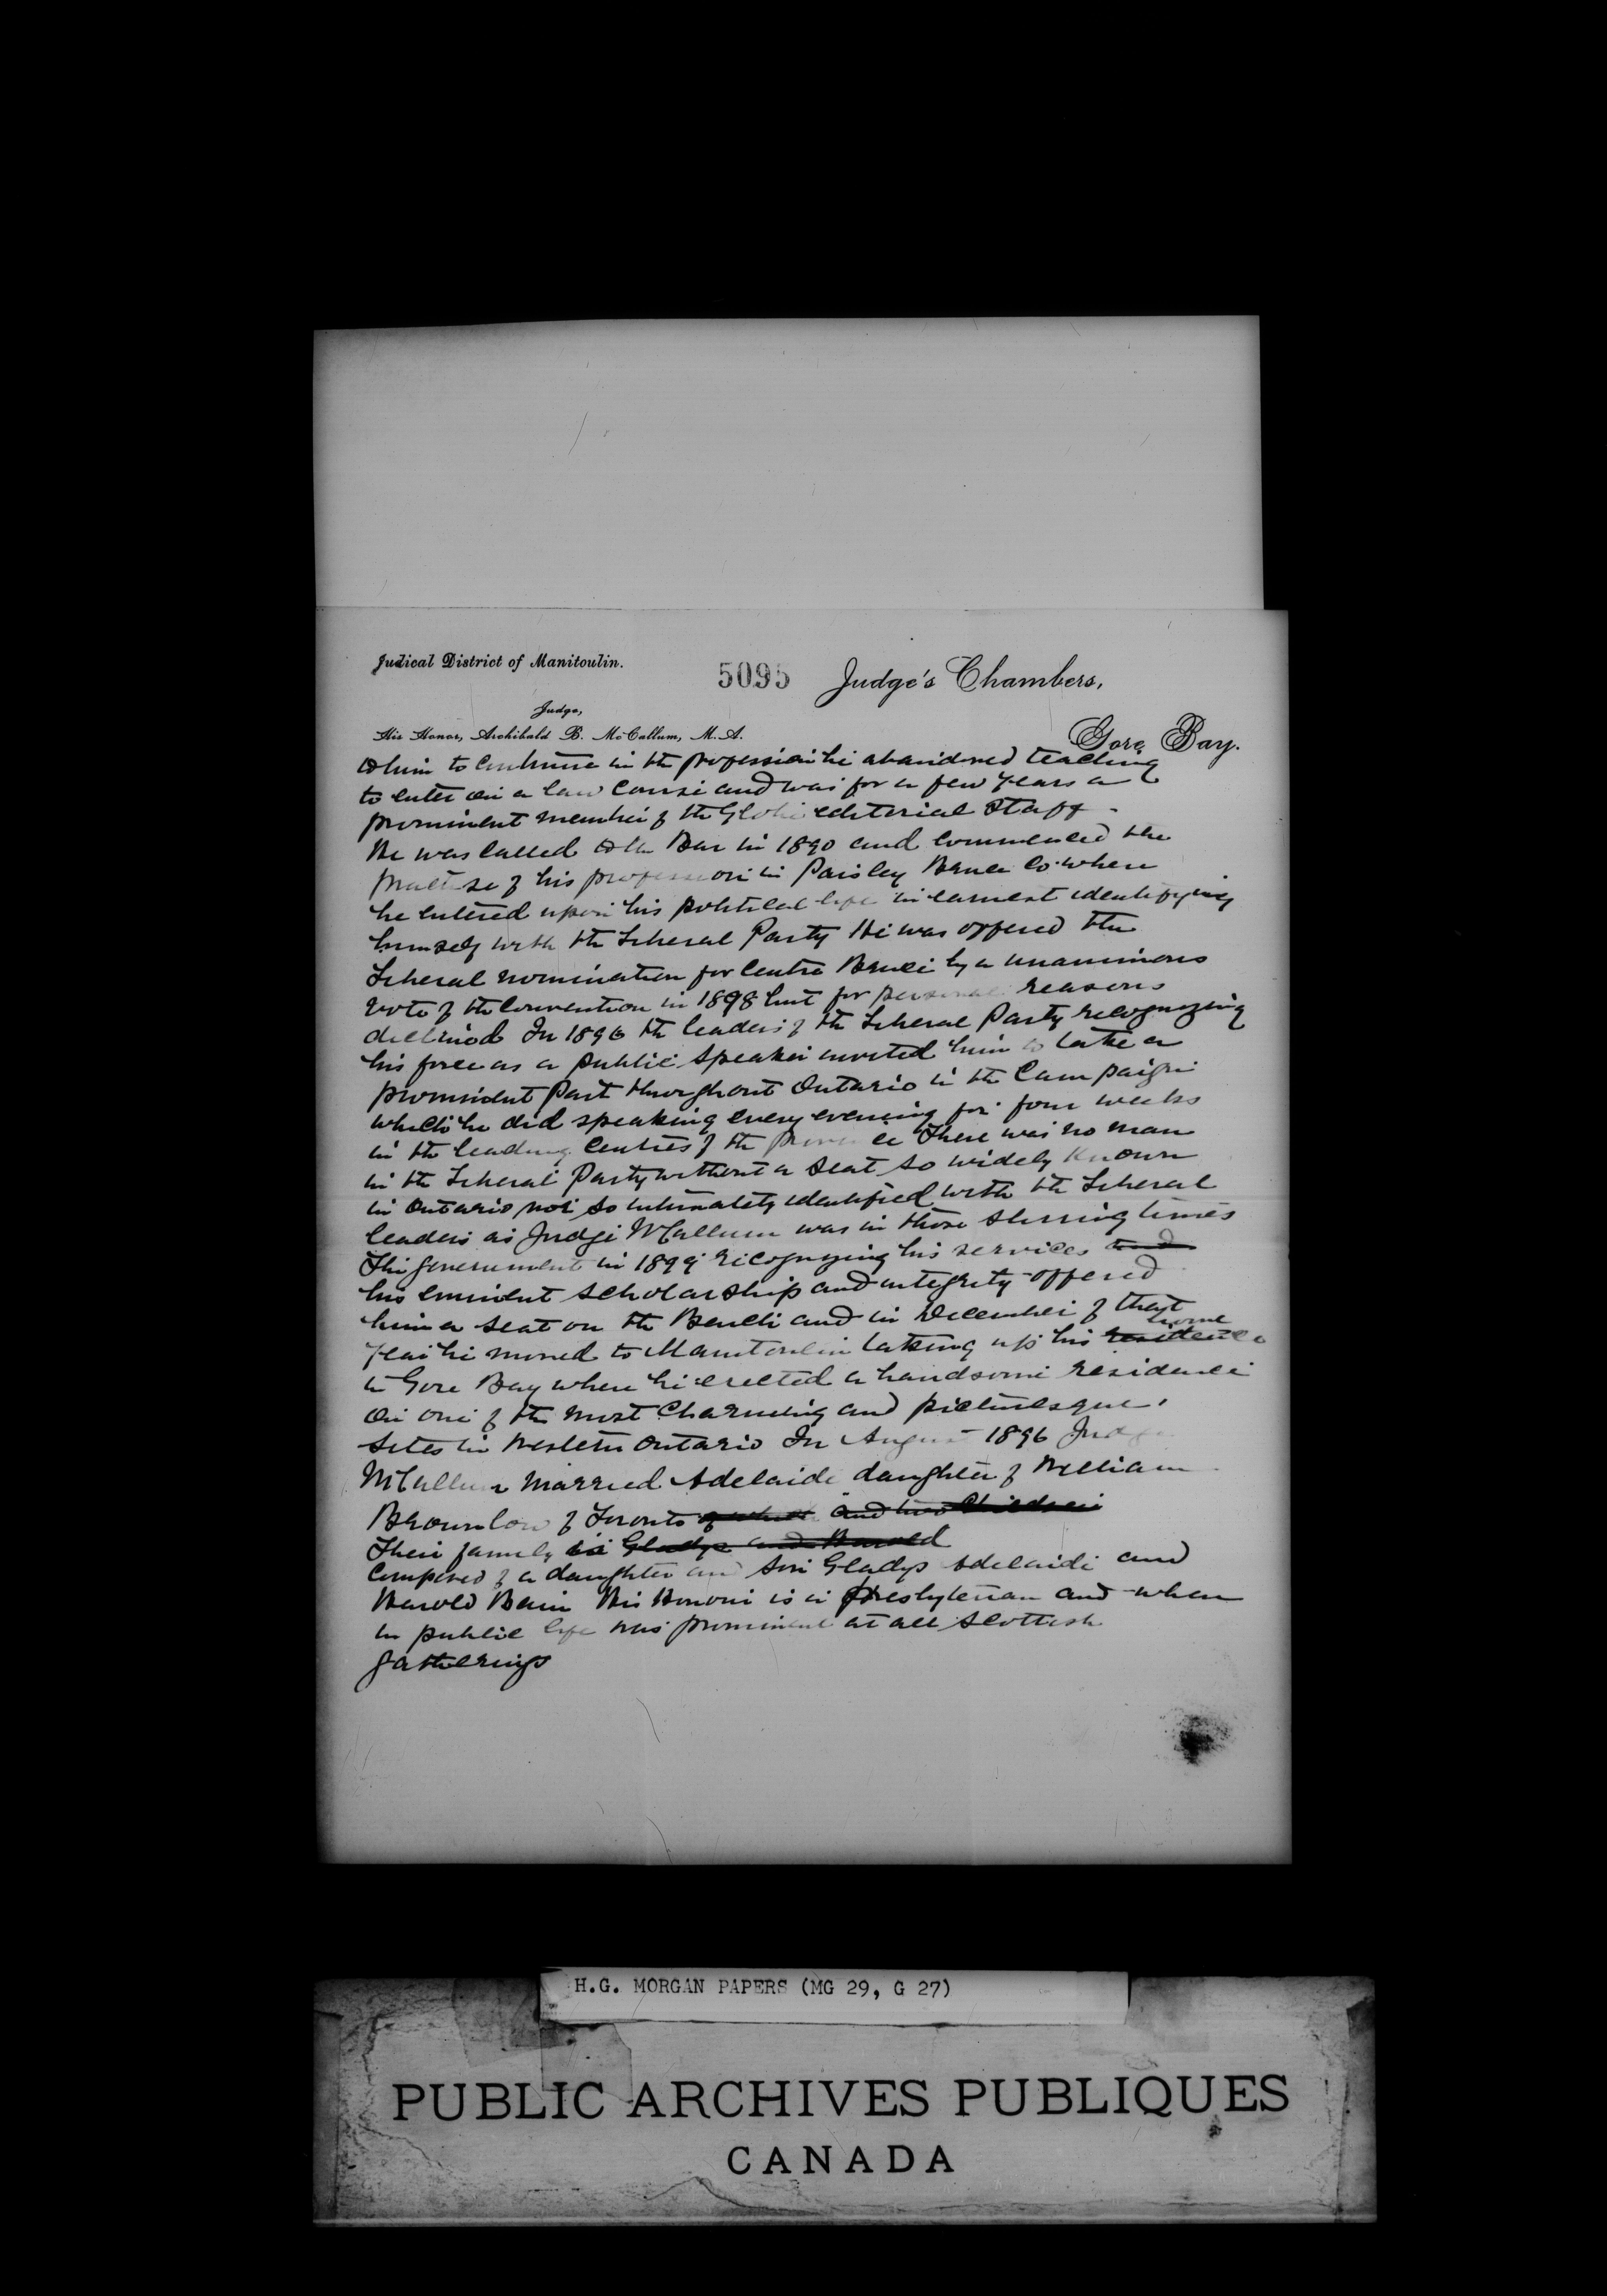 Judical District of Manitoulin.
5095 Judge's Chambers,
Judge,
His Honor, Archibald B. McCallum, M.A.
Gore Bay.
to him to continue in the profession he abandoned teaching
to enter on a law course and was for a few years a
prominent member of the Globe editorial staff.
He was called to the Bar in 1890 and commenced the
practise of his profession in Paisley Bruce Co. where
he entered upon his political life in earnest identifying
himself with the Liberal Party He was offered the
Liberal nomination for Centre Bruce by a unanimous
vote of the Convention in 1898 but for personal reasons
declined In 1896 the leaders of the Liberal Party recognizing
his force as a public speaker invited him to take a
prominent part throughout Ontario in the Campaign
which he did speaking every evening for four weeks
in the leading centres of the province There was no man
in the Liberal Party without a seat so widely known
in Ontario nor so intimately identified with the Liberal
leaders as Judge McCallum was in those stirring times
The Government in 1899 recognizing his services and
his eminent scholarship and integrity offered
him a seat on the Bench and in December of that
year he moved to Manitoulin taking up his residence home
in Gore Bay where he erected a handsome residence
on one of the most charming and picturesque
sites in Western Ontario In August 1896 Judge
McCallum married Adelaide daughter of William
Brownlow of Toronto and two children
Their family is Gladys and Harold
composed of a daughter and son Gladys Adelaide and
Harold Bain His Honour is a Presbyterian and when
in public life was prominent at all Scottish
gatherings
H.G. MORGAN PAPERS (MG 29, G 27)
PUBLIC ARCHIVES PUBLIQUES
CANADA